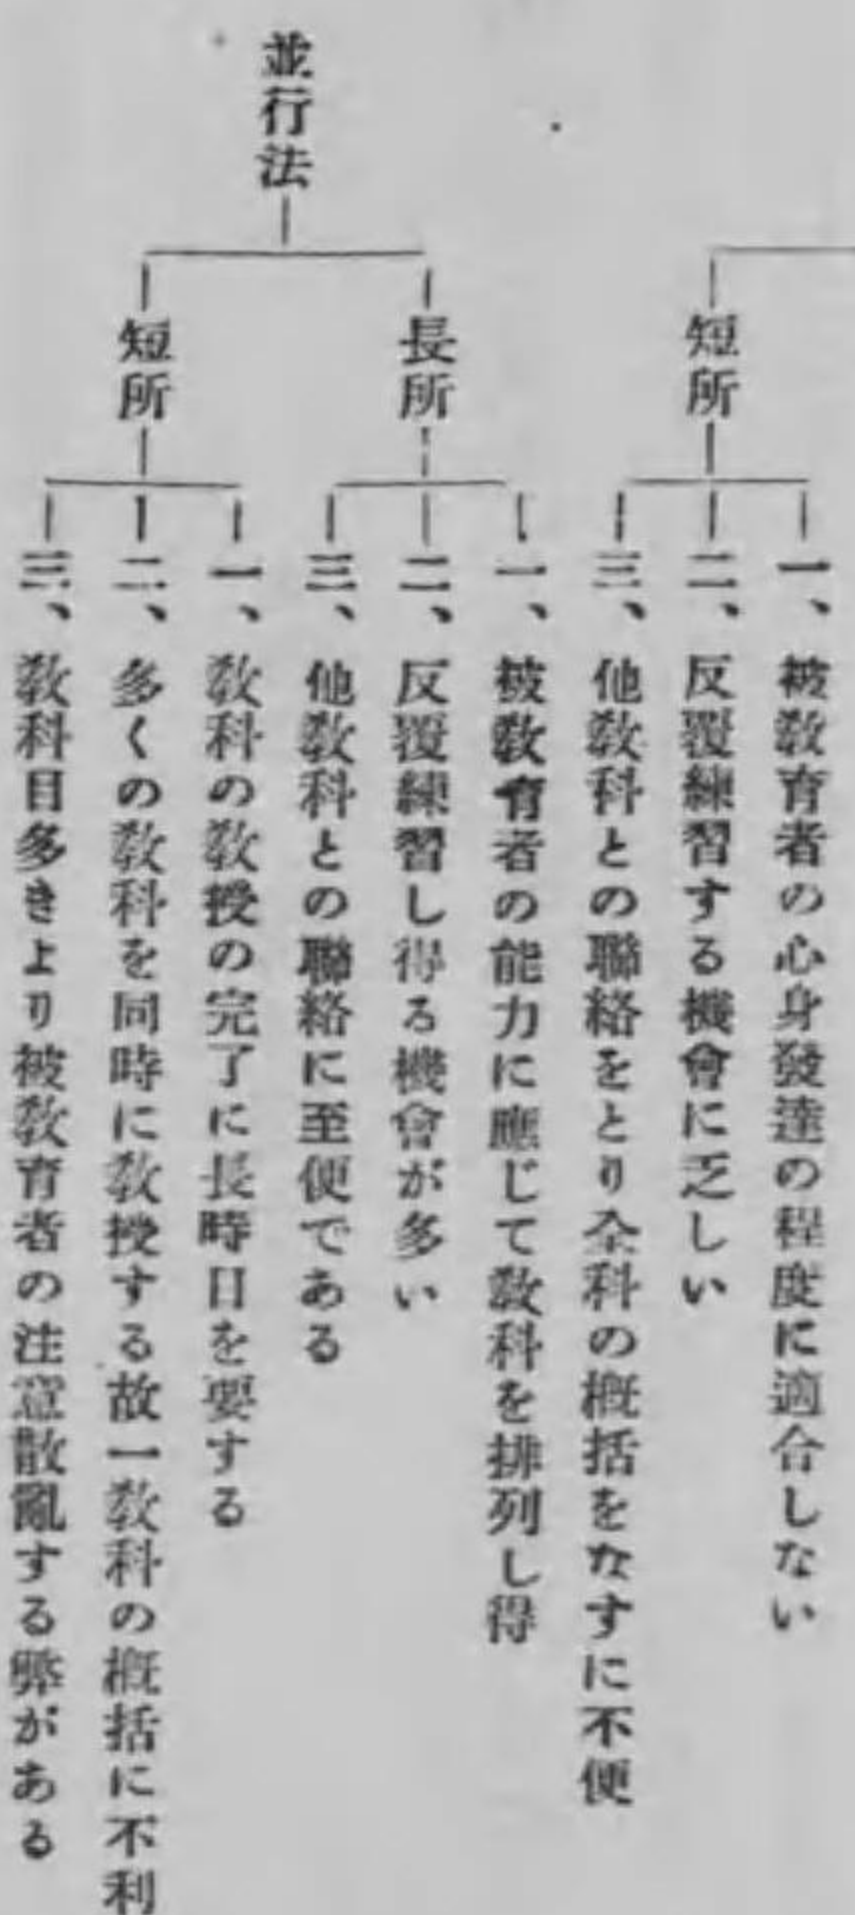 短所
一、被敎育者の心身發達の程度に適合しない
二、反覆練習する機會に乏しい
三、他敎科との聯絡をとり全科の槪括をなすに不便
並行法
長所
一、被敎育者の能力に應じて敎科を排列し得
二、反覆練習し得る機會が多い
三、他敎科との聯絡に至便である
短所
一、敎科の敎授の完了に長時日を要する
二、多くの敎科を同時に敎授する故一敎科の槪括に不利
三、敎科目多きより被敎育者の注意散亂する弊がある